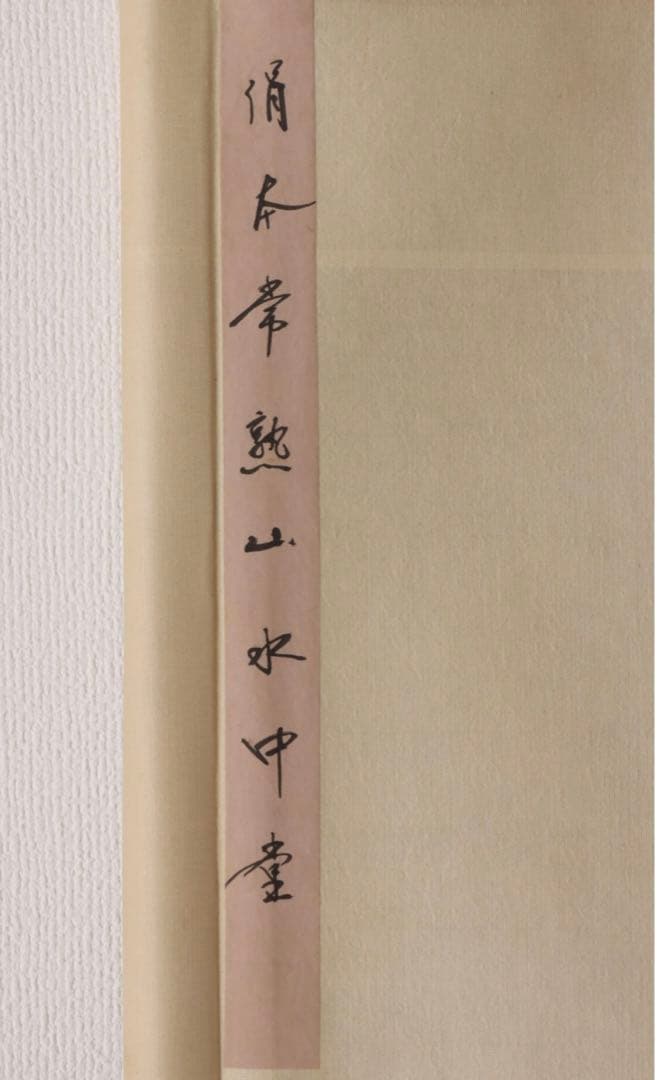 绢本常熟山水中堂